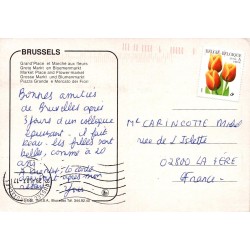 BRUSSELS
Grand'Place et Marche aux fleurs
Grote Markt en Bloemenmarkt
Market Place and Flower-market
Grosse Markt und Blumenmarkt
Piazza Grande e Mercato dei Fiori
Bonnes amitiés
de Bruxelles après
3 jours d'un colloque
épuisant. il fait
beau. les filles sont
belles, comme à 20
ans
A bientôt
amitiés après mon
Yves
BELGIE BELGIQUE
Mr CARINCOTTE Michel
rue de l'Islette
02800 LA FÈRE
France